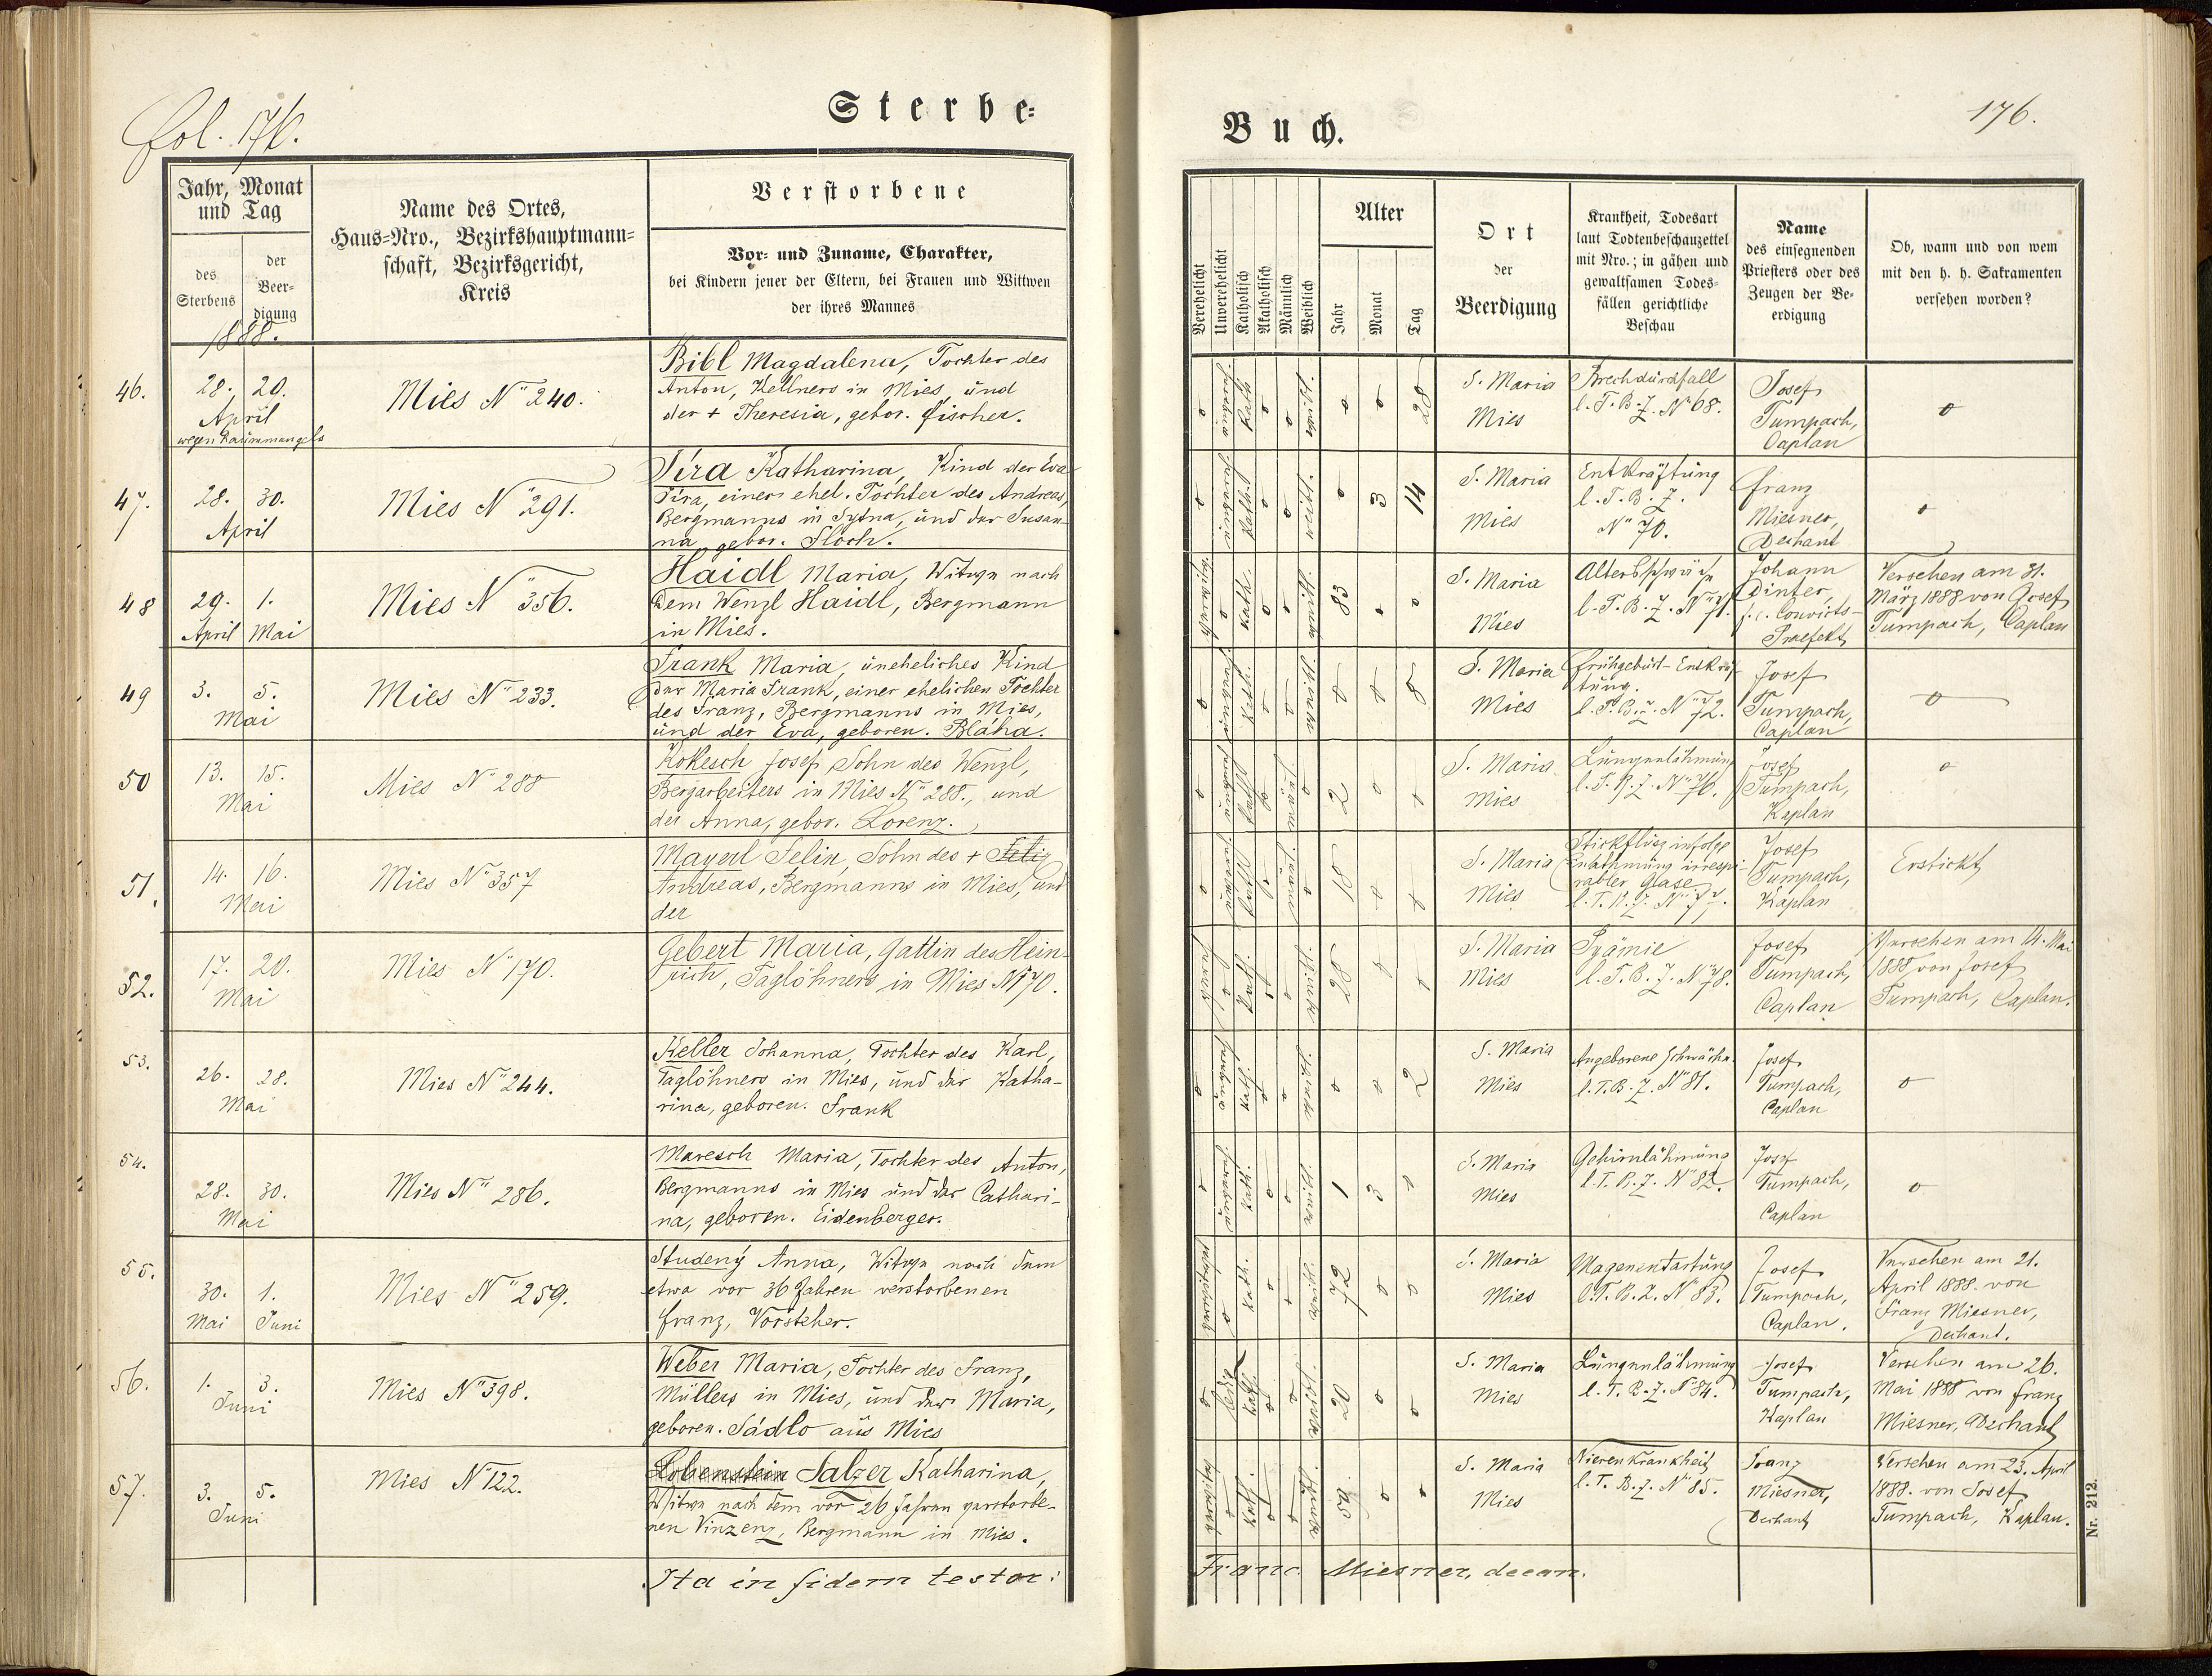 Sterbe-
fol. 176.
Jahr, Monat
und Tag
des
Sterbens
der
Beer-
digung
1888.
Name des Ortes,
Haus-Nro., Bezirkshauptmann-
schaft, Bezirksgericht,
Kreis
Verstorbene
Vor- und Zuname, Charakter,
bei Kindern jener der Eltern, bei Frauen und Wittwen
der ihres Mannes
46.
28. 20.
April
wegen Raummangels
Mies N° 240.
Bibl Magdalena, Tochter des
Anton, Kellners in Mies, und
der + Theresia, gebor. Fischer.
47.
28. 30.
April
Mies N° 291.
Katharina, Kind der Eva
einer ehel. Tochter des Andreas,
Bergmanns in und der Susan-
na, gebor.
48
29. 1.
April Mai
Mies N° 356.
Haidl Maria, Witwe nach
dem Wenzl Haidl, Bergmann
in Mies.
49
3. 5.
Mai
Mies N° 233.
Frank Maria, uneheliches Kind
der Maria Frank, einer ehelichen Tochter
des Franz, Bergmanns in Mies,
und der Eva, geboren. Bláha.
50
13. 15.
Mai
Mies N° 288
Kokesch Josef Sohn des Wenzl,
Bergarbeiters in Mies N° 288., und
der Anna, gebor. Lorenz.
51.
14. 16.
Mai
Mies N° 357
Mayerl Felix, Sohn des +
Andreas, Bergmanns in Mies, und
der
52.
17. 20.
Mai
Mies N° 170.
Gebert Maria, Gattin des Hein-
rich, Taglöhners in Mies N° 170.
53.
26. 28.
Mai
Mies N° 244.
Keller Johanna, Tochter des Karl,
Taglöhners in Mies, und der Katha-
rina, geboren. Frank
54.
28. 30.
Mai
Mies N° 286.
Maresch Maria, Tochter des Anton,
Bergmanns in Mies und der Cathari-
na, geboren. Eidenberger.
55.
30. 1.
Mai Juni
Mies N° 259.
Studený Anna, Witwe nach dem
etwa vor 36 Jahren verstorbenen
Franz, Vorsteher.
56.
1. 3.
Juni
Mies N° 398.
Weber Maria, Tochter des Franz,
Müllers in Mies, und der Maria,
geboren. Sádlo aus Mies
57.
3. 5.
Juni
Mies N° 122.
Lobenstein Salzer Katharina,
Witwe nach dem vor 26 Jahren verstorbe-
nen Vinzenz, Bergmann in Mies.
Ita in fidem testor:
Buch.
176.
Verehelicht
Unverehelicht
Katholisch
Akatholisch
Männlich
Weiblich
Alter
Jahr
Monat
Tag
Ort
der
Beerdigung
Krankheit, Todesart
laut Todtenbeschauzettel
mit Nro.; in gähen und
gewaltsamen Todes-
fällen gerichtliche
Beschau
Name
des einsegnenden
Priesters oder des
Zeugen der Be-
erdigung
Ob, wann und von wem
mit den h. h. Sakramenten
versehen worden?
o Kath. o o o o 28
S. Maria
Mies
Brechdurchfall
l. T. B. Z. N° 68.
Josef
Tumpach,
Caplan
o
o Kath. o o o 3 14
S. Maria
Mies
Entkräftung
l. T. B. Z.
N° 70.
Franz
Miesner,
Dechant
o
o Kath. o o 83 o o
S. Maria
Mies
Altersschwäche
l. T. B. Z. N° 71.
Johann
Dinter,
f. e. Convicts-
Praefekt
Versehen am 31.
März 1888 von Josef
Tumpach, Caplan
o Kath. o o o o 8
S. Maria
Mies
Frühgeburt-Entkräf-
tung.
l. T. B. Z. N° 72.
Josef
Tumpach,
Caplan
o
o o 2 o o
S. Maria
Mies
Lungenlähmung
l. T. B. Z. N° 76.
Josef
Tumpach,
Kaplan
o
o o 18 o o
S. Maria
Mies
Stickfluss infolge
Einathmung irrespi-
rabler Glase
l. T. B. Z. N° 77.
Josef
Tumpach,
Kaplan
Erstickt
o Kath. o o 28 o o
S. Maria
Mies
Pyämie
l. T. B. Z. N° 78.
Josef
Tumpach,
Caplan
Versehen am Mai
1888 von Josef
Tumpach, Caplan.
o Kath. o o o o 2
S. Maria
Mies
Angeborene Schwäche.
l. T. B. Z. N° 81.
Josef
Tumpach,
Caplan
o
o Kath. o o 1 3 o
S. Maria
Mies
Gehirnlähmung
l. T. B. Z. N° 82.
Josef
Tumpach,
Caplan
o
o Kath. o o 72 o o
S. Maria
Mies
Magenentartung
l. T. B. Z. N° 83.
Josef
Tumpach,
Caplan.
Versehen am 21.
April 1888 von
Franz Miesner,
Dechant.
o Kath. o o 20 o o
S. Maria
Mies
Lungenlähmung
l. T. B. Z. N° 84.
Josef
Tumpach,
Kaplan
Versehen am 26.
Mai 1888 von Franz
Miesner, Dechant
o Kath. o o o o
S. Maria
Mies
Nierenkrankheit
l. T. B. Z. N° 85.
Franz
Miesner,
Dechant
Versehen am 23. April
1888. von Josef
Tumpach, Kaplan.
Franc. Miesner, decan.
Nr. 212.